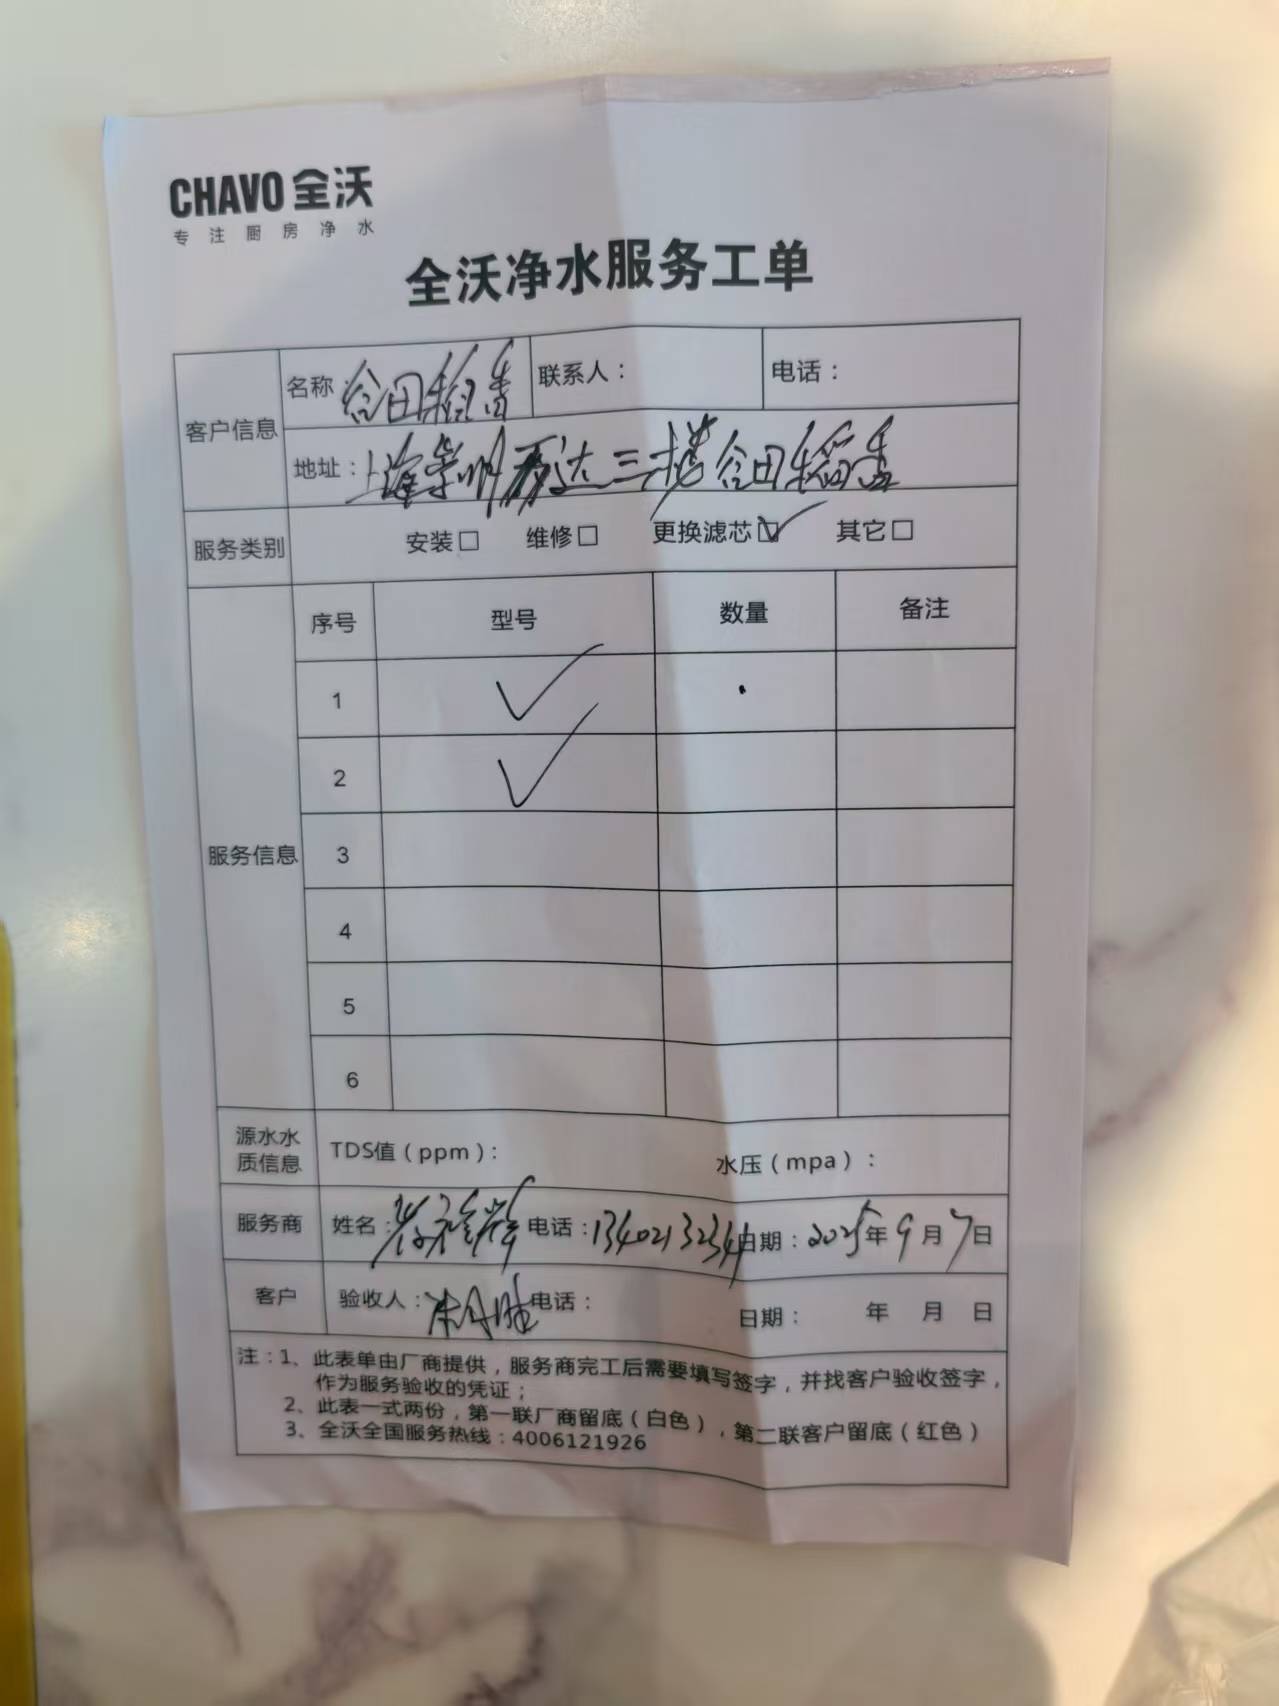 CHAVO 全沃
专注厨房净水
全沃净水服务工单
客户信息
名称 谷田稻香 联系人： 电话：
地址：上海 万达三楼谷田稻香
服务类别 安装□ 维修□ 更换滤芯☑ 其它□
服务信息
序号 型号 数量 备注
1 ✓
2 ✓
3
4
5
6
源水水质信息 TDS值（ppm）： 水压（mpa）：
服务商 姓名： 电话：13402132344 日期：2025年9月7日
客户 验收人： 电话： 日期： 年 月 日
注：1、此表单由厂商提供，服务商完工后需要填写签字，并找客户验收签字，
作为服务验收的凭证；
2、此表一式两份，第一联厂商留底（白色），第二联客户留底（红色）
3、全沃全国服务热线：4006121926